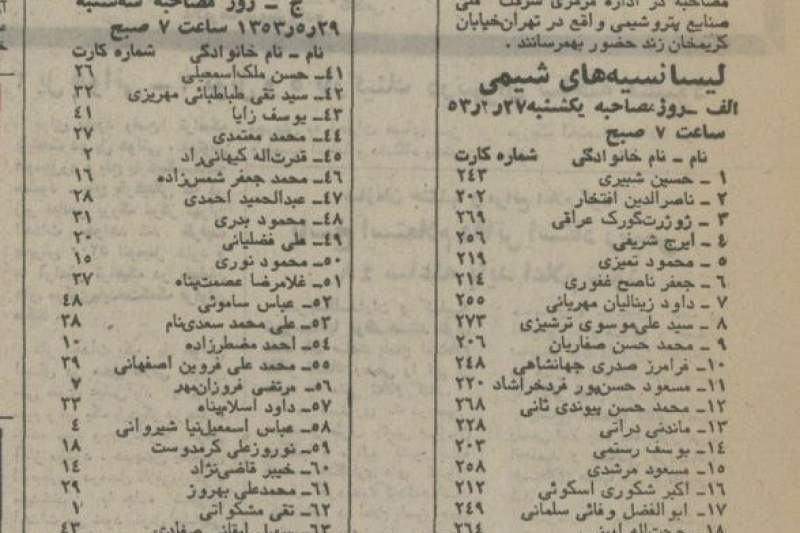 مصاحبه در اداره مرکزی شرکت ملی
صنایع پتروشیمی واقع در تهران‌خیابان
کریمخان زند حضور بهمرسانند .
لیسانسیه‌های شیمی
الف ـ روز مصاحبه یکشنبه ۵۳ر۲ر۲۷
ساعت ۷ صبح
نام ـ نام خانوادگی شماره کارت
۱ ـ حسین شبیری ۲۴۳
۲ ـ ناصرالدین افتخار ۲۰۲
۳ ـ ژوزرت‌گورک عراقی ۲۶۹
۴ ـ ایرج شریفی ۲۵۶
۵ ـ محمود تمیزی ۲۱۹
۶ ـ جعفر ناصح غفوری ۲۱۴
۷ ـ داود زینالیان مهربانی ۲۵۵
۸ ـ سید علی‌موسوی ترشیزی ۲۷۳
۹ ـ محمد حسن صفاریان ۲۰۶
۱۰ـ فرامرز صدری جهانشاهی ۲۴۸
۱۱ـ مسعود حسن‌پور فردخراشاد ۲۲۰
۱۲ـ محمد حسن پیوندی ثانی ۲۶۸
۱۳ـ ماندنی دراتی ۲۲۸
۱۴ـ یوسف رستمی ۲۰۳
۱۵ـ مسعود مرشدی ۲۵۸
۱۶ـ اکبر شکوری اسکوئی ۲۱۲
۱۷ـ ابوالفضل وفائی سلمانی ۲۴۹
۱۸ـ حجت‌اله امینی ۲۶۴
ج ـ روز مصاحبه سه‌شنبه
۲۹ر۵ر۱۳۵۳ ساعت ۷ صبح
نام ـ نام خانوادگی شماره کارت
۴۱ـ حسن ملک‌اسمعیلی ۲۶
۴۲ـ سید تقی طباطبائی مهریزی ۳۲
۴۳ـ یوسف زایا ۴۱
۴۴ـ محمد معتمدی ۲۷
۴۵ـ قدرت‌اله کیهانی‌راد ۲
۴۶ـ محمد جعفر شمس‌زاده ۱۶
۴۷ـ عبدالحمید احمدی ۲۸
۴۸ـ محمود بدری ۳۱
۴۹ـ علی فضلیانی ۲۰
۵۰ـ محمود نوری ۱۵
۵۱ـ غلامرضا عصمت‌پناه ۳۷
۵۲ـ عباس ساموئی ۴۸
۵۳ـ علی محمد سعدی‌نام ۳۸
۵۴ـ احمد مضطرزاده ۱۰
۵۵ـ محمد علی فروین اصفهانی ۳۹
۵۶ـ مرتضی فروزان‌مهر ۷
۵۷ـ داود اسلام‌پناه ۳۳
۵۸ـ عباس اسمعیل‌نیا شیروانی ۴
۵۹ـ نوروزعلی کرمدوست ۱۸
۶۰ـ خیبر قاضی‌نژاد ۱۴
۶۱ـ محمدعلی بهروز ۲۹
۶۲ـ تقی مشکواتی ۱
۶۳ـ ۴۳